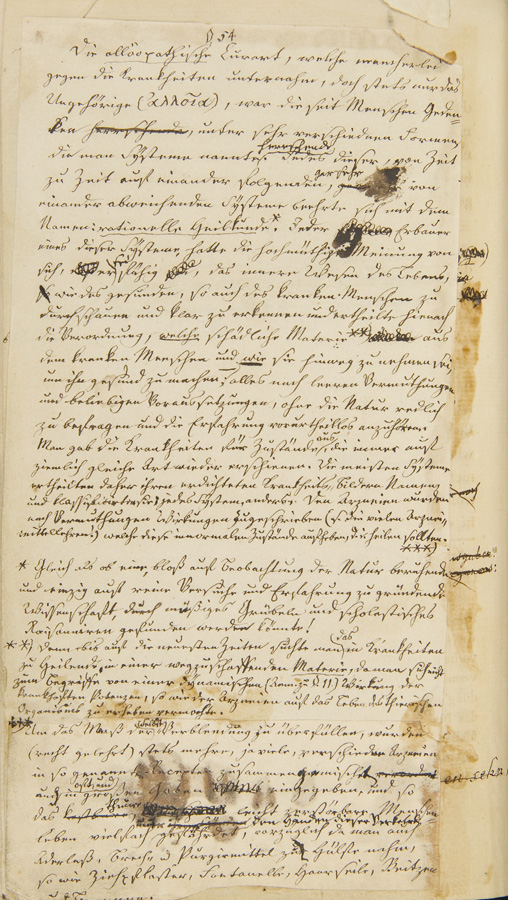 § 54
Die allöopathische Curart, welche mancherlei
gegen die Krankheiten unternahm, doch stets nur das
Ungehörige (αλλοῖα), war die seit Menschen Geden=
ken herrschende, unter sehr verschiednen Formen,
die man Systeme nannte. Jedes dieser, von Zeit
herrschende
zu Zeit auf einander folgenden, gar sehr von
einander abweichenden Systeme beehrte sich mit dem
Namen: rationelle Heilkunde*. Jeder Erbauer
eines dieser Systeme hatte die hochmüthige Meinung von
sich, das innere Wesen des Lebens,
so wie des gesunden, so auch des kranken Menschen zu
durchschauen und klar zu erkennen und ertheilte hienach
die Verordnung, welche schädliche Materie** aus
dem kranken Menschen und wie sie hinweg zu nehmen sei,
um ihn gesund zu machen, alles nach leeren Vermuthungen
und beliebigen Voraussetzungen, ohne die Natur redlich
zu befragen und die Erfahrung vorurtheillos anzuhören.
Man gab die Krankheiten für Zustände aus, die immer auf
ziemlich gleiche Art wieder erschienen. Die meisten Systeme
ertheilten daher ihren erdichteten Krankheits-bildern Namen
und klassifizirten sie, jedes System, anders. Den Arzneien wurden
nach Vermuthungen Wirkungen zugeschrieben (s. die vielen Arznei-
mittellehren!) welche diese innormalen Zustände aufheben, d.i. heilen sollten.
***)
* Gleich als ob eine, bloß auf Beobachtung der Natur beruhende
und einzig auf reine Versuche und Erfahrung zu gründende
Wissenschaft, durch müßiges Grübeln und scholastisches
Raisonniren gefunden werden könnte!
**) Denn bis auf die neuesten Zeiten suchte man das in Krankheiten
zu Heilende, in einer wegzuschaffenden Materie, da man sich nicht
zum Begriffe von einer dynamischen (Anm. zu § 11) Wirkung der
krankhaften Potenzen, so wie der Arzneien auf das Leben des thierischen
Organisms zu erheben vermochte.
***) Um das Maß der Selbst-Verblendung zu überfüllen, wurden
(recht gelehrt) stets mehre, ja viele, verschiedne Arzneien
in so genannten Recepten zusammengemischt
und in oft und großen Gaben eingegeben, und so
das theure, leicht zerstörbare Menschen-
leben vielfach gefährdet, vorzüglich da man auch
Aderlaß, Brech- u Purgirmittel zu Hülfe nahm,
so wie Ziehpflaster, Fontanelle, Haarseile, Beitzen